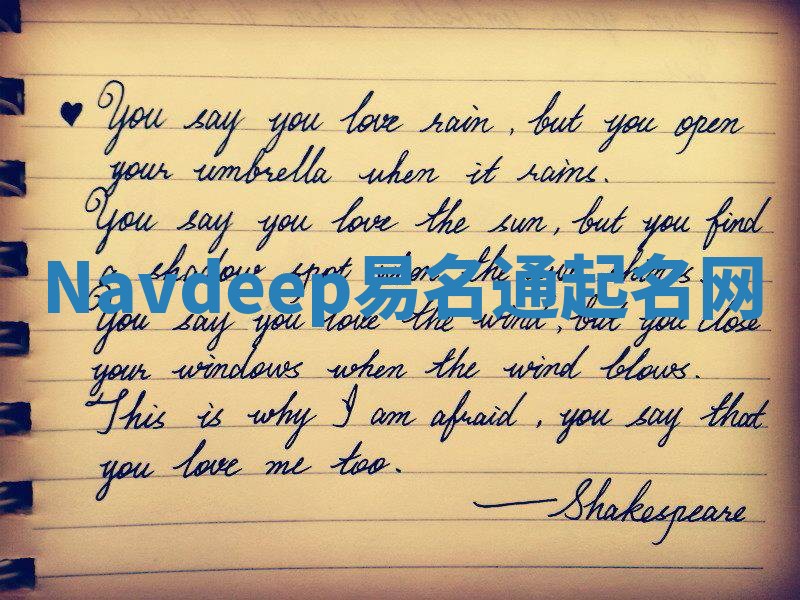 ♥ You say you love rain, but you open
your umbrella when it rains.
You say you love the sun, but you find
a shadow spot when the sun shines.
Navdeep易名通起名网
You say you love the wind, but you close
your windows when the wind blows.
This is why I am afraid, you say that
you love me too.
—Shakespeare